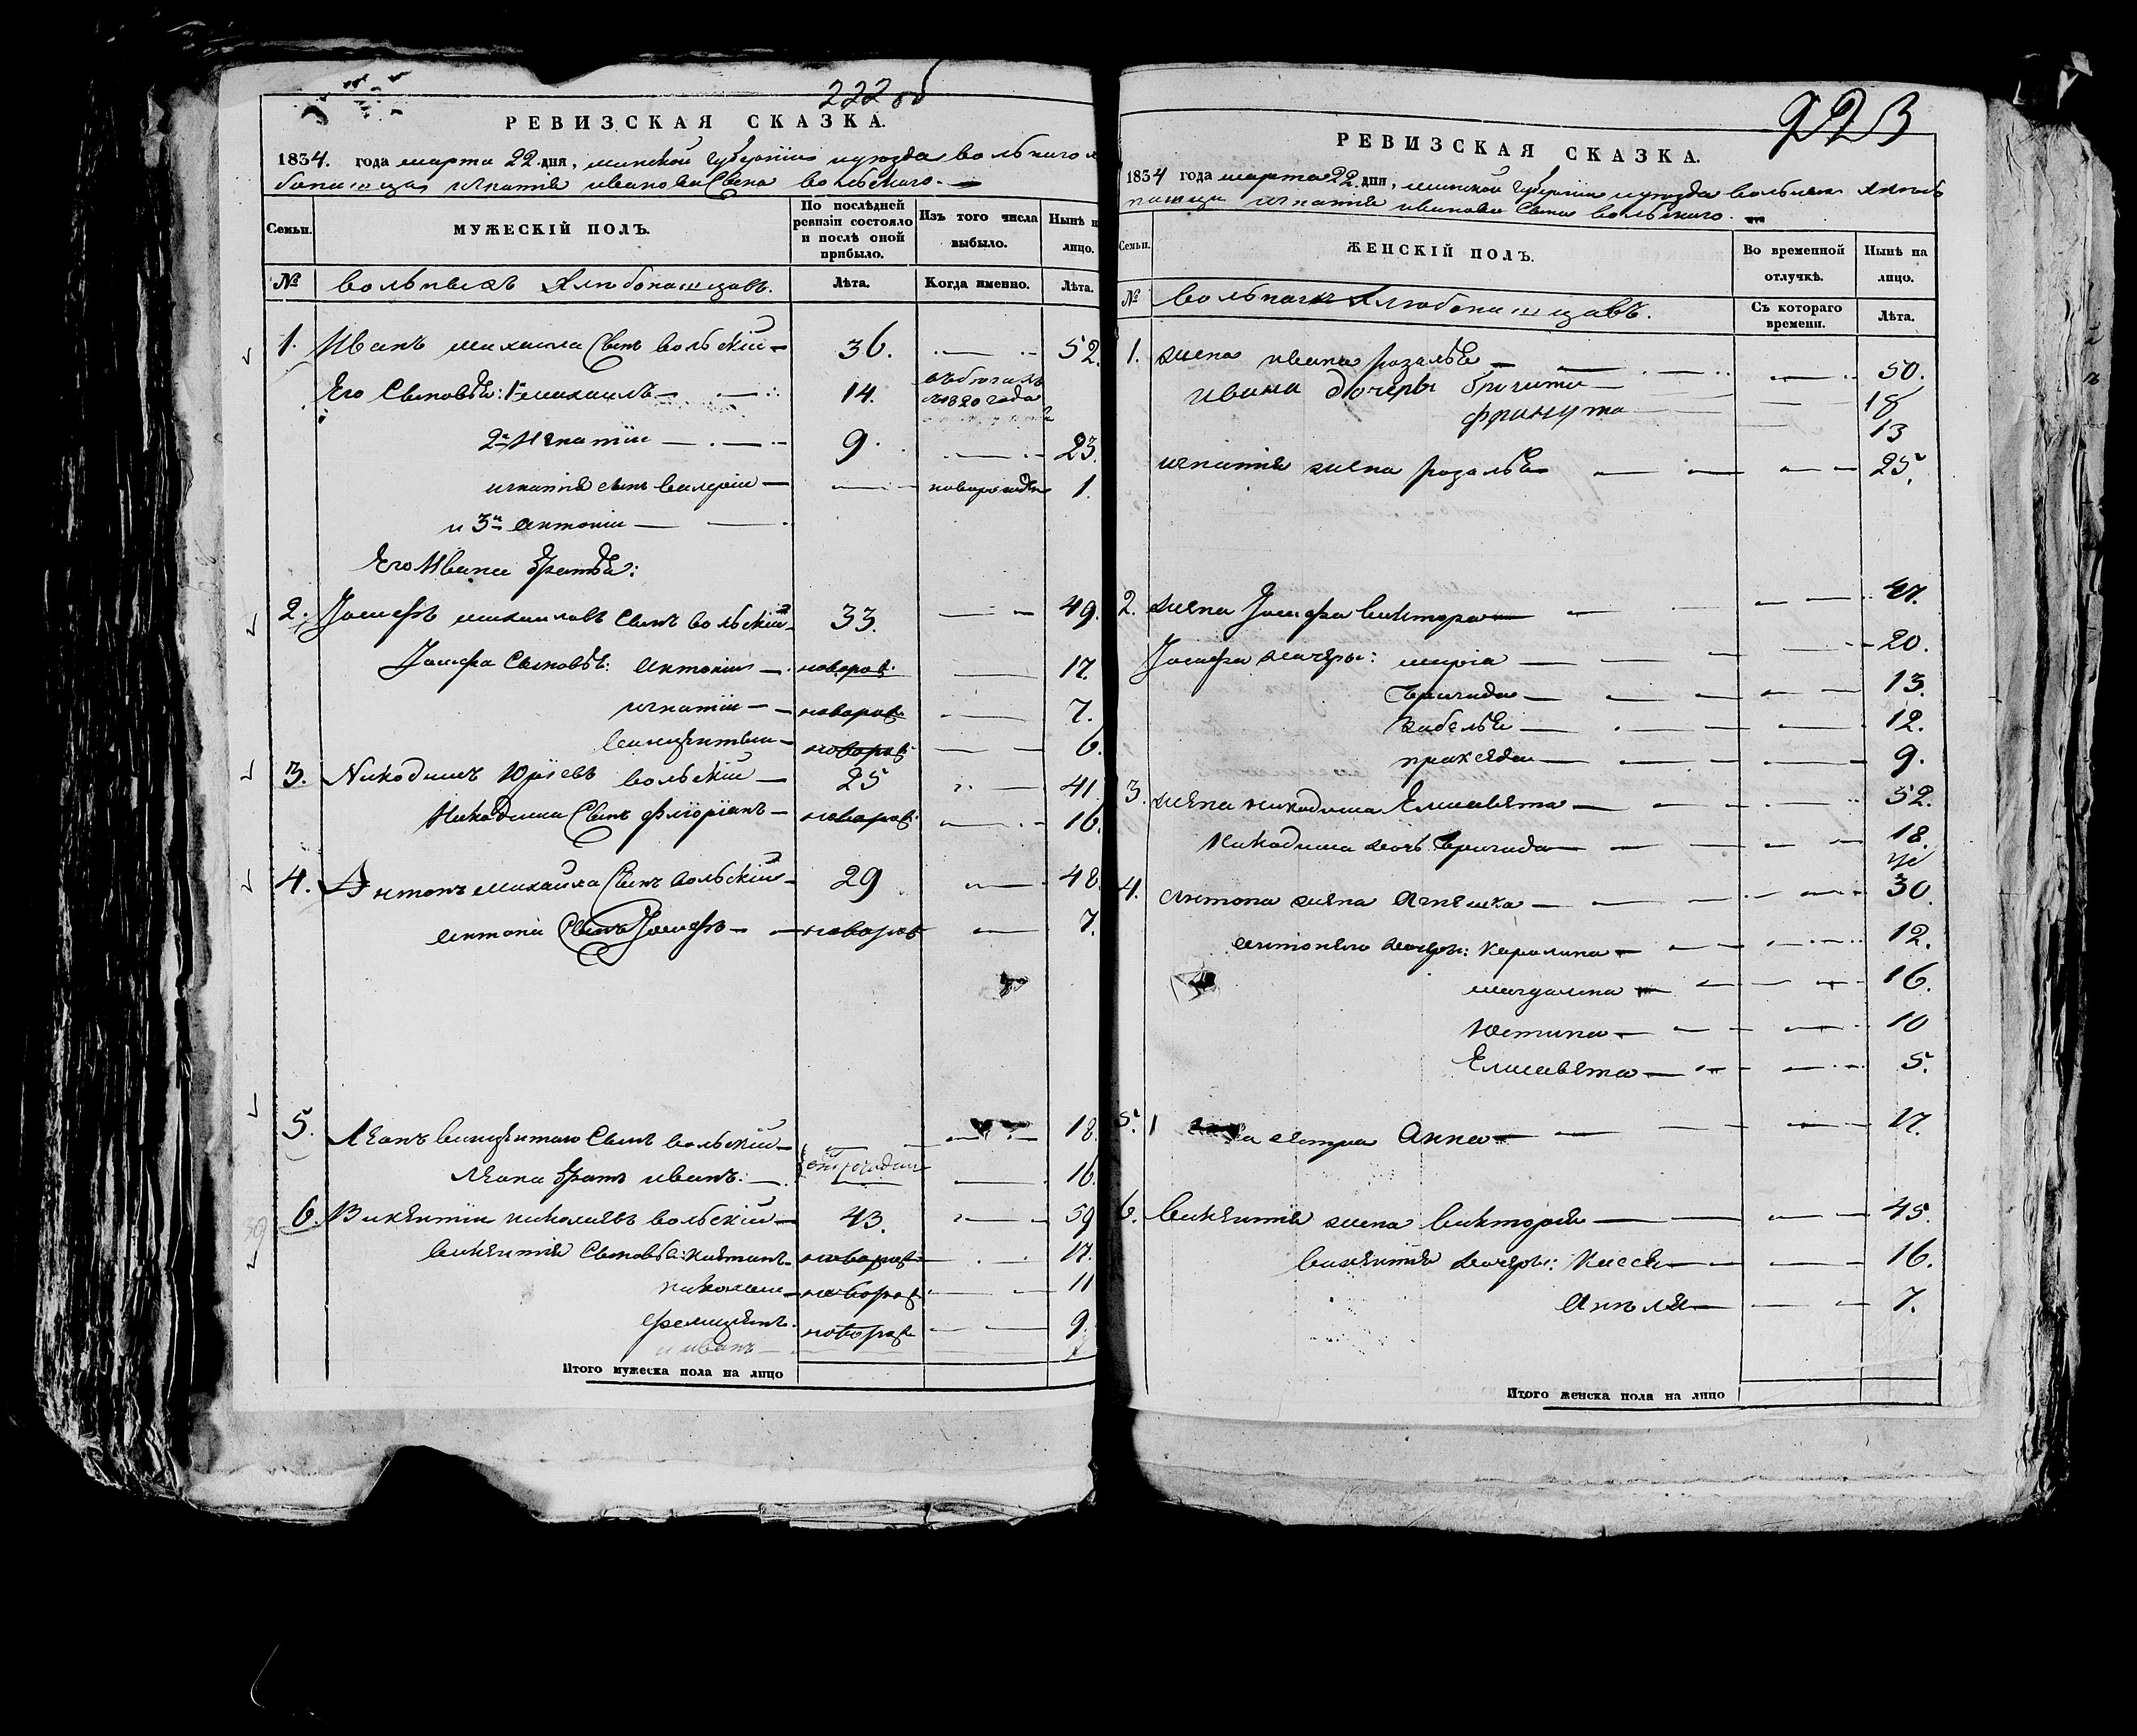 222 об
РЕВИЗСКАЯ СКАЗКА.
1834. года марта 22 дня, минской губерніи и уѣзда вольнаго х
лебопашца игнатія иванова сына вольскаго.
Семьи.
МУЖЕСКІЙ ПОЛЪ.
По послѣдней ревизіи состояло и послѣ оной прибыло.
Изъ того числа выбыло.
Нынѣ н
лицо.
№
вольныхъ хлѣбопашцовъ.
Лѣта.
Когда именно.
Лѣта.
1. Иванъ михаила сынъ вольскій 36. 52.
Его сыновья: 1й михаилъ 14. 1820 года
2й Игнатій 9. 23.
игнатія сынъ валерій новорожден 1.
и 3й антоній
Его Ивана братья:
2. Іосифъ михаиловъ сынъ вольскій 33. 49.
Іосифа сыновья: антоній новорож. 17.
игнатій новорож. 7.
викентій новорож. 6.
3. Никодимъ Юрьевъ вольскій 25 41
Никодима сынъ флоріанъ новорож. 16.
4. Антонъ михаила сынъ вольскій 29 48.
антона сынъ Іосифъ новорож 7.
5. Леонъ викентіевъ сынъ вольскій 18.
Леона братъ иванъ: 16.
6. Викентій николаевъ вольскій 43. 59
викентія сыновья: каетанъ новорож. 17.
николай новорож 11
фелиціянъ новорож 9.
и иванъ
Итого мужеска пола на лицо
223
РЕВИЗСКАЯ СКАЗКА.
1834 года марта 22 дня, минской губерніи и уѣзда вольнаго хлѣбо
пашца игнатія иванова сына вольскаго.
Семьи.
ЖЕНСКІЙ ПОЛЪ.
Во временной отлучкѣ.
Нынѣ на лицо.
№
вольныхъ хлѣбопашцовъ.
Съ котораго времени.
Лѣта.
1. жена ивана розалія 50.
ивана дочери бригита 18
францута 13
игнатія жена розалія 25.
2. жена Іосифа виктора 47.
Іосифа дочери: марія 20.
бригида 13.
Забелья 12.
праксѣда 9.
3. жена никодима Елисавета 32.
никодима дочь бригида 18.
4. антона жена агнешка 30.
антонія дочери: каролина 12.
магдалина 16.
юстина 10
Елисавета 5.
5. сестра Анна 17.
6. викентія жена викторія 45.
викентія дочери: 16.
анеля 7.
Итого женска пола на лицо